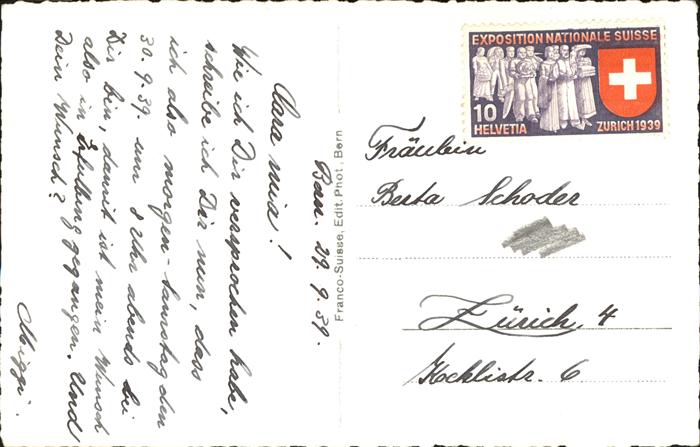 Bern. 29.9.39.
Cara mia!
Wie ich Dir versprochen habe,
schreibe ich Dir nun, dass
ich also morgen - Samstag den
30.9.39. um 8 Uhr abends bei
Dir bin, damit ist mein Wunsch
also in Erfüllung gegangen. Und
Dein Wunsch?
Franco-Suisse, Edit. Phot., Bern
EXPOSITION NATIONALE SUISSE
10
HELVETIA ZURICH 1939
Fräulein
Berta Schoder
Zürich, 4
Kochlistr. 6